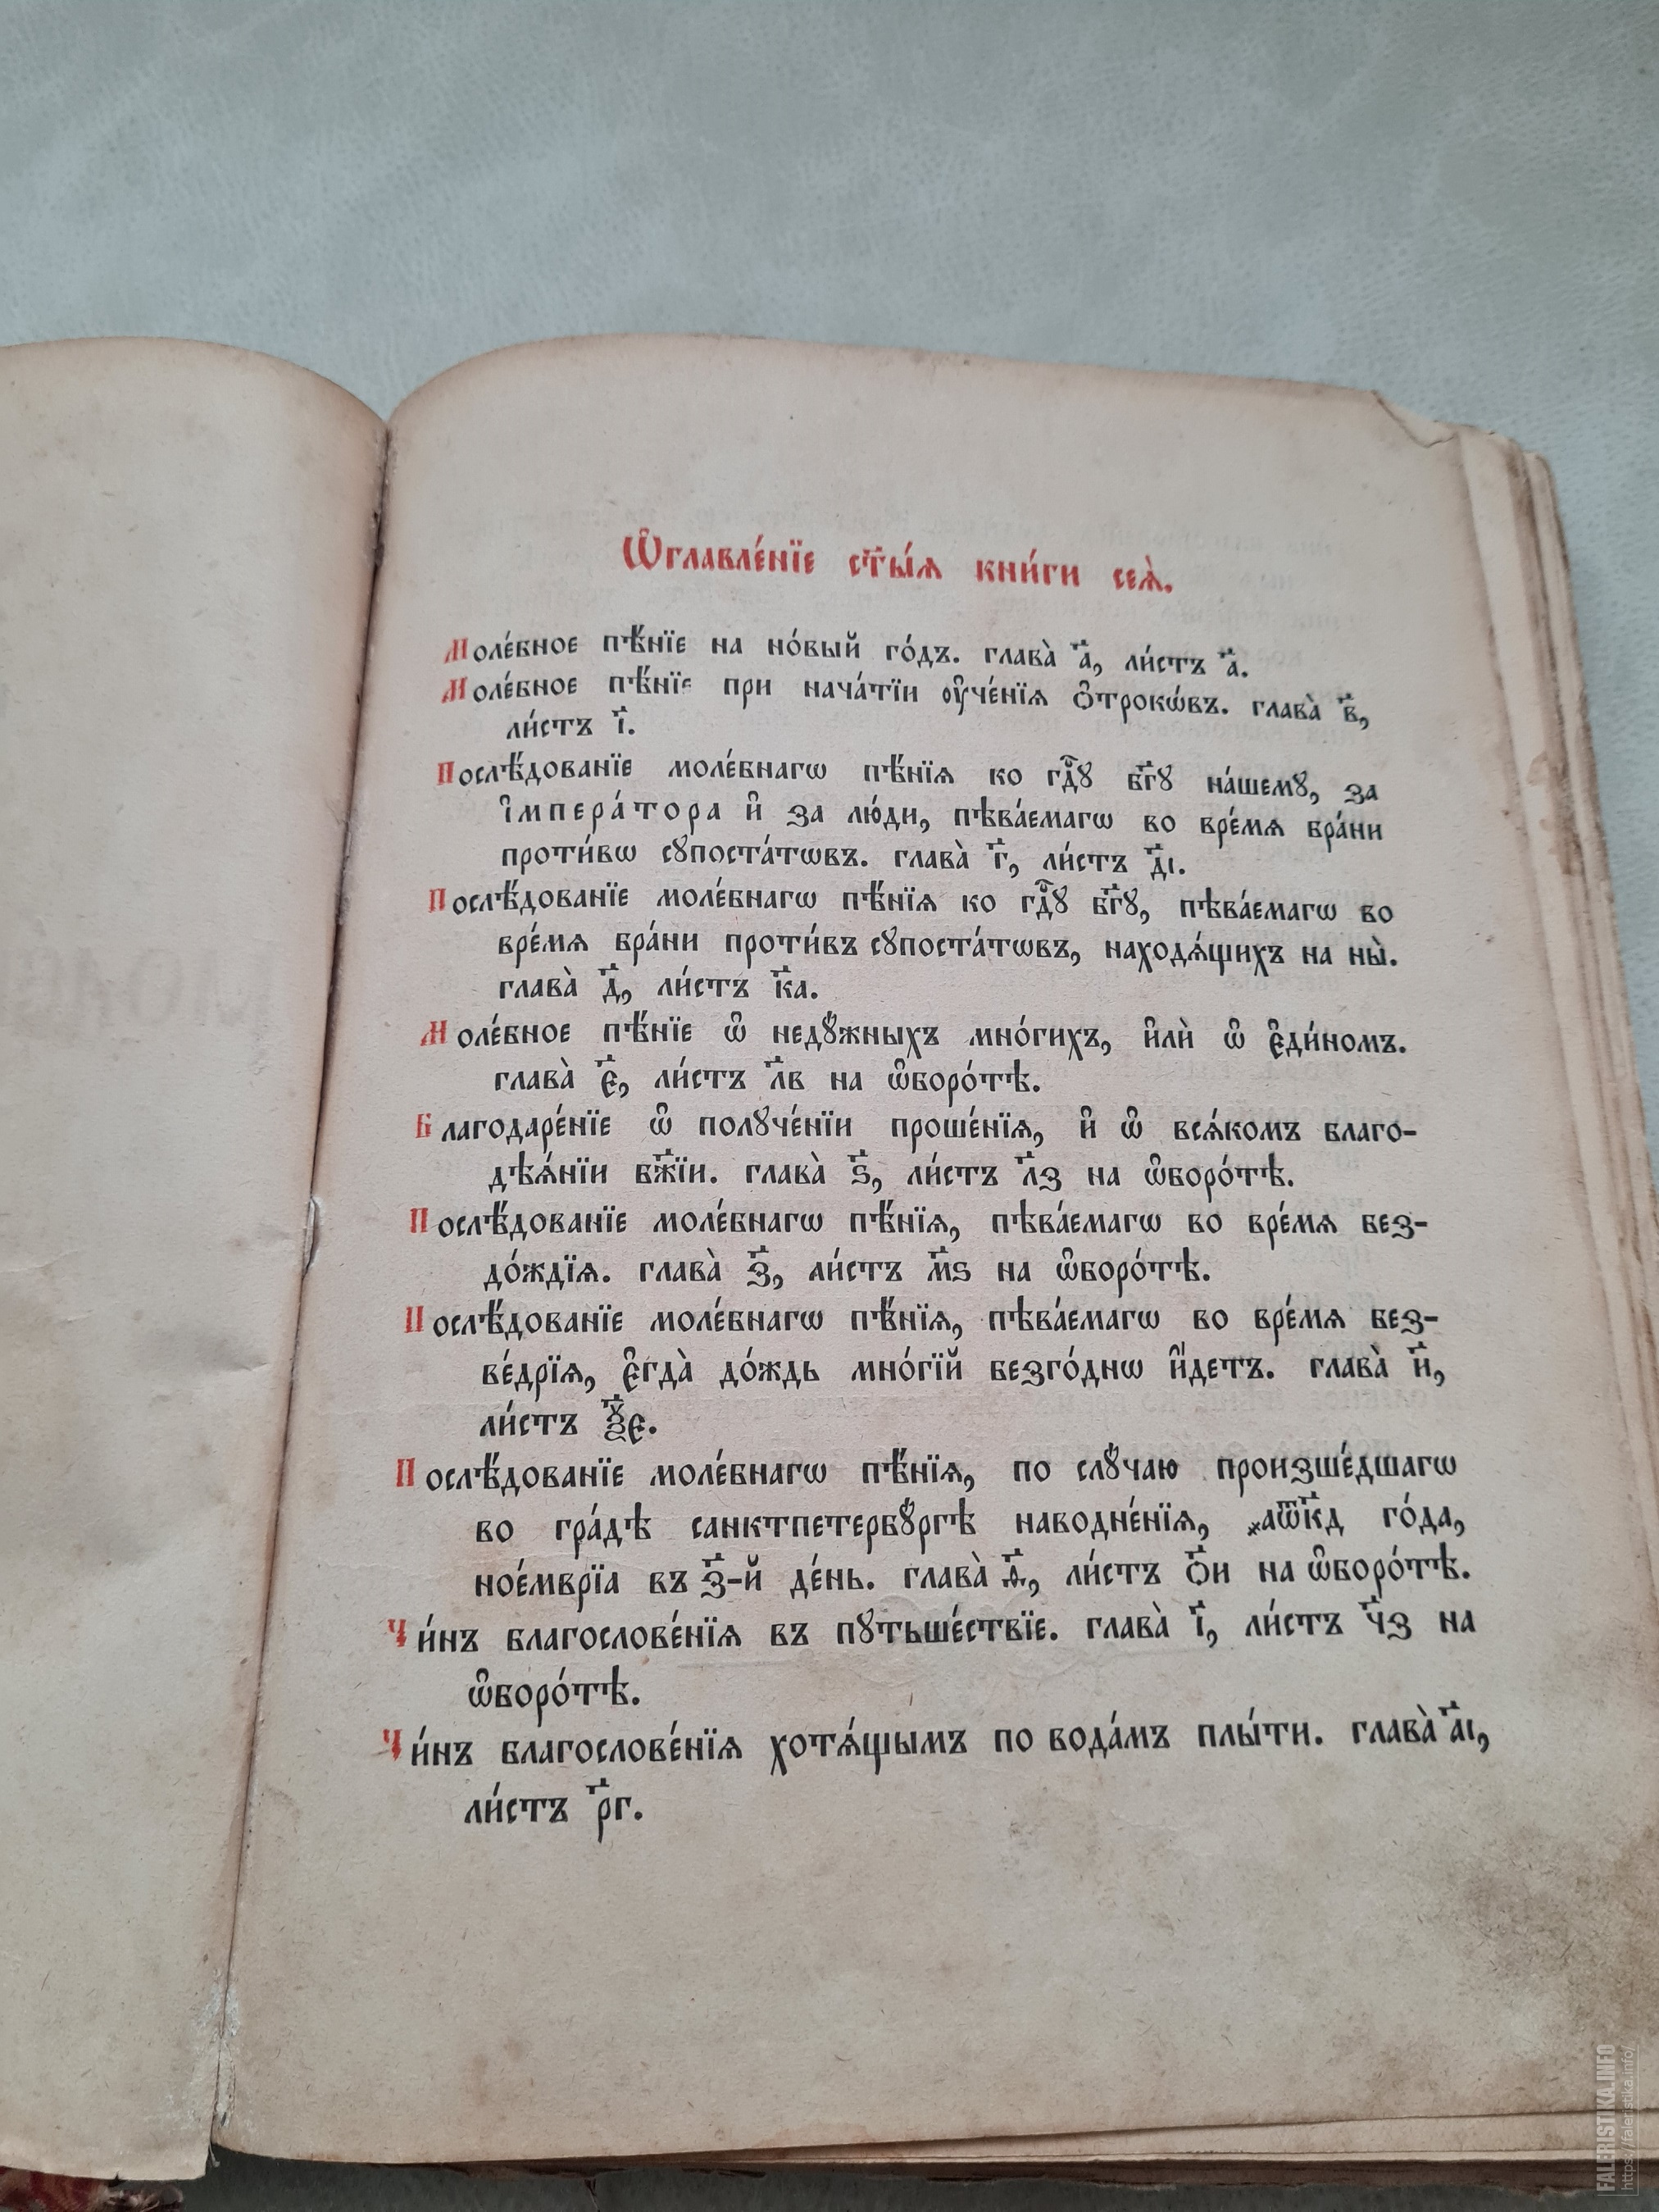 Ѡ҆главле́нїе ст҃ы́ѧ кни́ги сеѧ̀.
Моле́бное пѣ́нїе на но́вый го́дъ. глава̀ а҃, ли́стъ а҃.
Моле́бное пѣ́нїе при нача́тїи ᲂу҆че́нїѧ ѻ҆трокѡ́въ. глава̀ в҃,
ли́стъ і҃.
Послѣ́дованїе моле́бнагѡ пѣ́нїѧ ко гдⷭ҇ꙋ бг҃ꙋ на́шемꙋ, за
і҆мпера́тора и҆ за лю́ди, пѣва́емагѡ во вре́мѧ бра́ни
проти́вѡ сꙋпоста́тѡвъ. глава̀ г҃, ли́стъ д҃і.
Послѣ́дованїе моле́бнагѡ пѣ́нїѧ ко гдⷭ҇ꙋ бг҃ꙋ, пѣва́емагѡ во
вре́мѧ бра́ни проти́въ сꙋпоста́тѡвъ, находѧ́щихъ на ны̀.
глава̀ д҃, ли́стъ к҃а.
Моле́бное пѣ́нїе ѡ҆ недꙋ́жныхъ мно́гихъ, и҆лѝ ѡ҆ є҆ди́номъ.
глава̀ є҃, ли́стъ л҃в на ѡ҆боро́тѣ.
Благодаре́нїе ѡ҆ полꙋче́нїи проше́нїѧ, и҆ ѡ҆ всѧ́комъ благо-
дѣѧ́нїи бж҃їи. глава̀ ѕ҃, ли́стъ л҃з на ѡ҆боро́тѣ.
Послѣ́дованїе моле́бнагѡ пѣ́нїѧ, пѣва́емагѡ во вре́мѧ без-
до́ждїѧ. глава̀ з҃, ли́стъ м҃ѕ на ѡ҆боро́тѣ.
Послѣ́дованїе моле́бнагѡ пѣ́нїѧ, пѣва́емагѡ во вре́мѧ без-
ве́дрїѧ, є҆гда̀ до́ждь мно́гїй безго́днѡ и҆́детъ. глава̀ и҃,
ли́стъ ѯ҃є.
Послѣ́дованїе моле́бнагѡ пѣ́нїѧ, по слꙋ́чаю произше́дшагѡ
во гра́дѣ санктпетербꙋ́ргѣ наводне́нїѧ, ҂аѿк҃д го́да,
ное́мврїа въ з҃-й де́нь. глава̀ ѳ҃, ли́стъ ѻ҃и на ѡ҆боро́тѣ.
Чи́нъ благослове́нїѧ въ пꙋтьше́ствїе. глава̀ і҃, ли́стъ ч҃з на
ѡ҆боро́тѣ.
Чи́нъ благослове́нїѧ хотѧ́щымъ по вода́мъ плы́ти. глава̀ а҃і,
ли́стъ р҃г.
FALERISTIKA.INFO
https://faleristika.info/